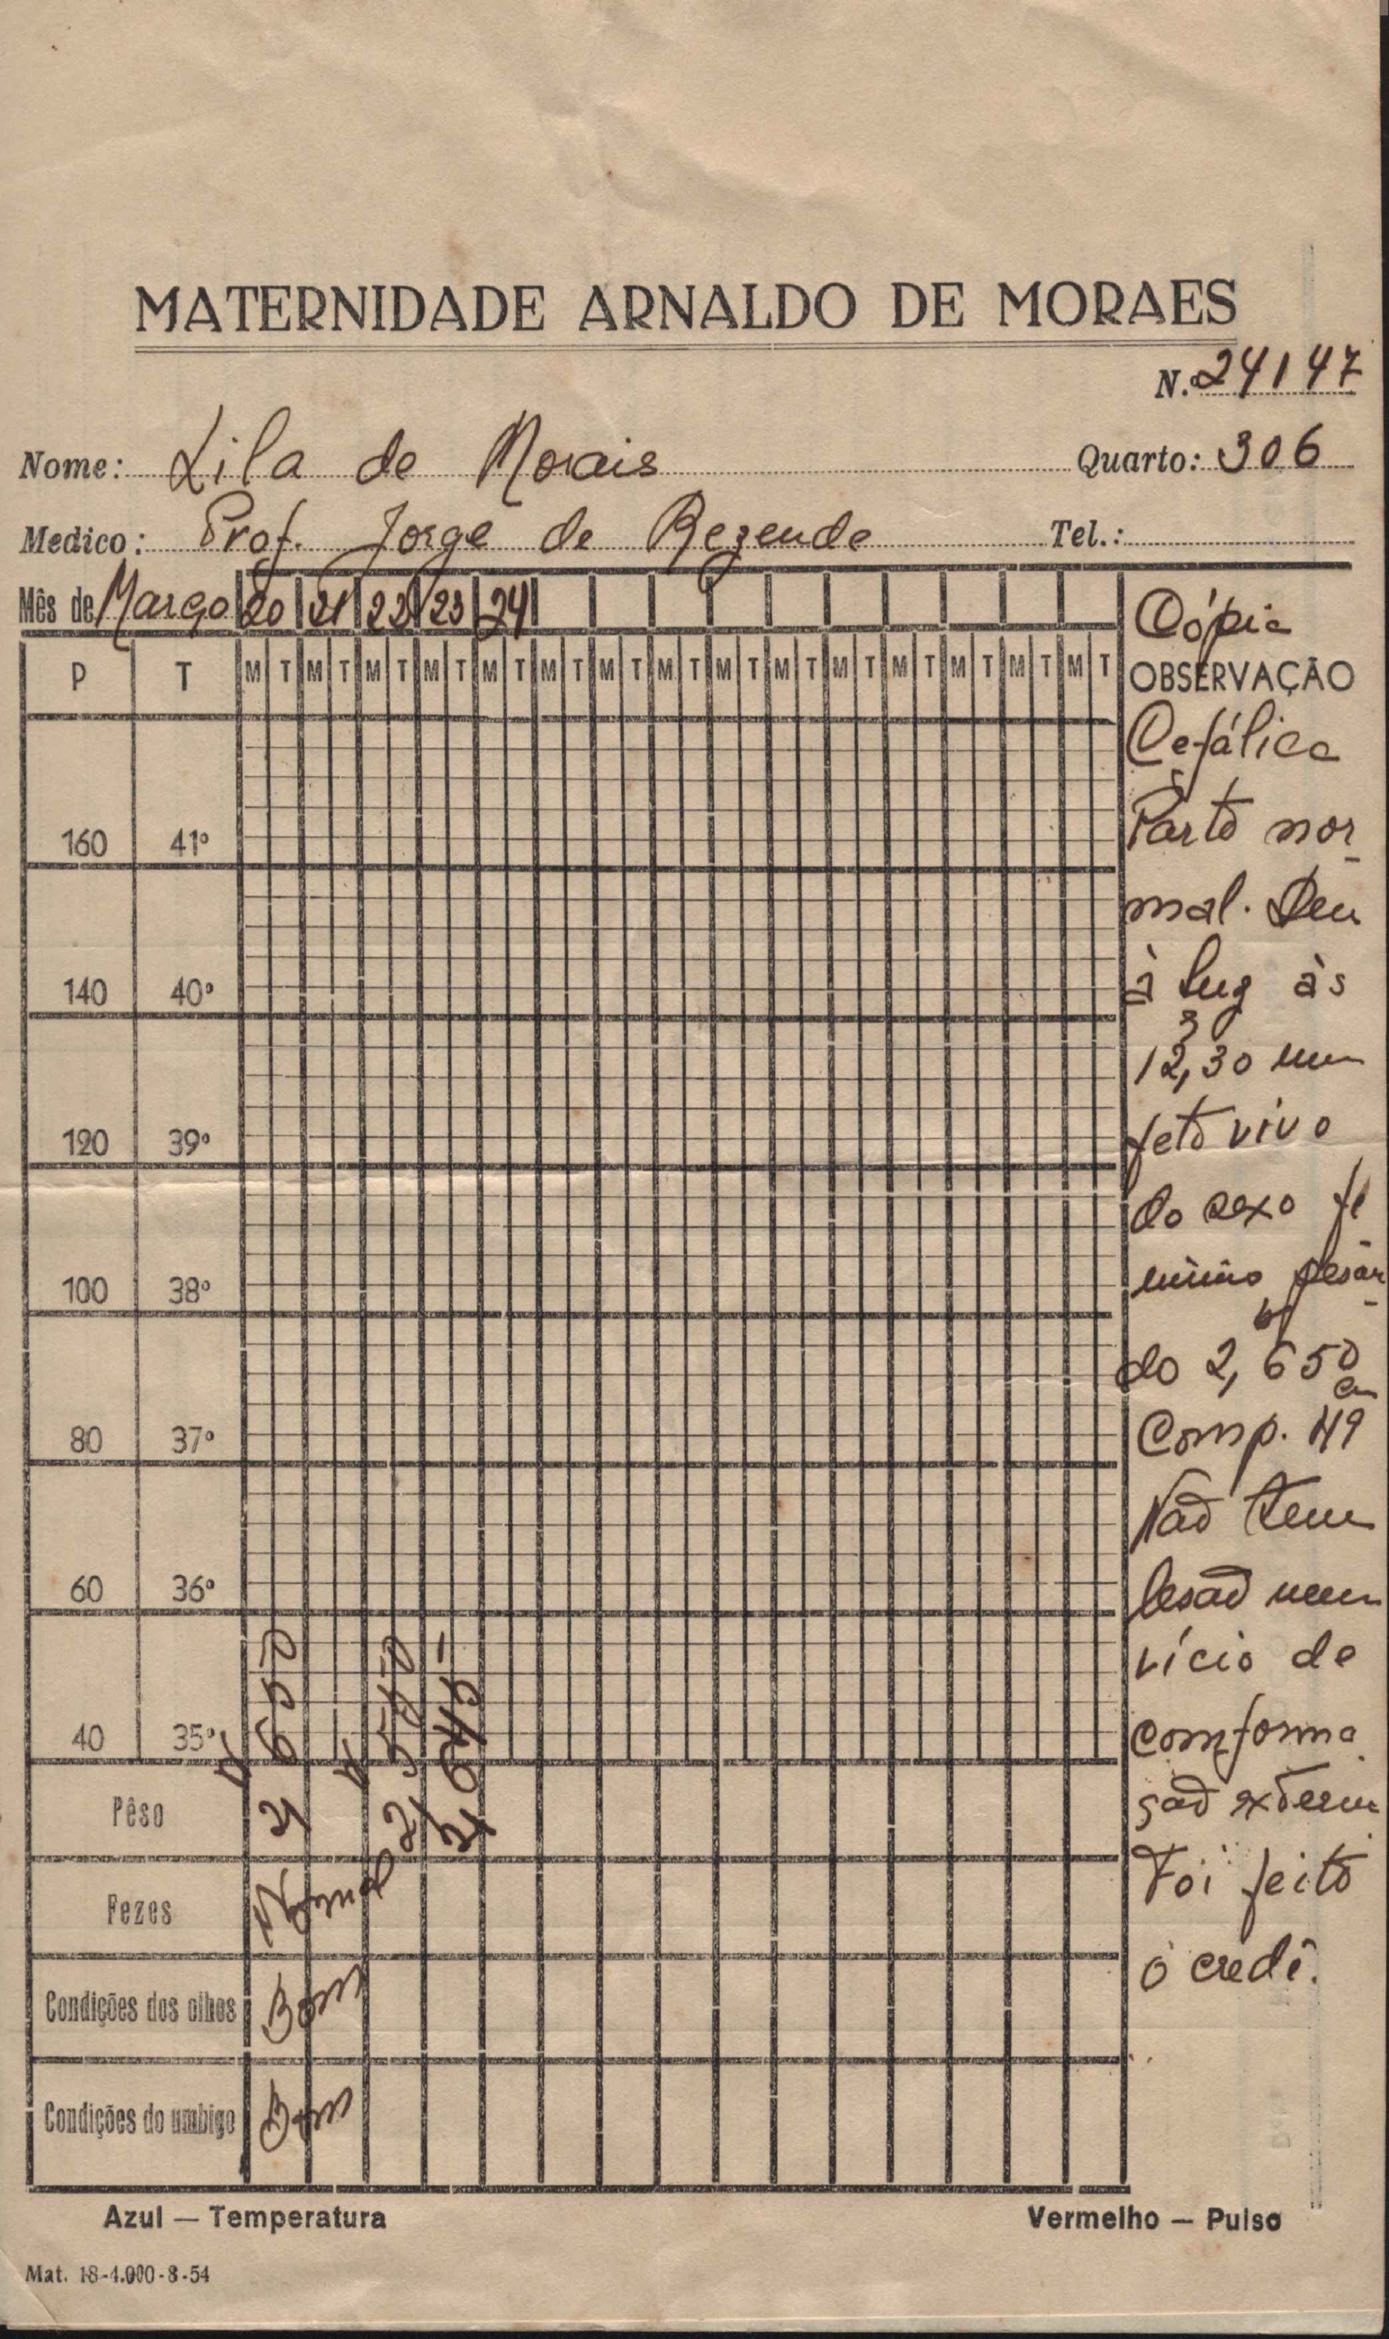 MATERNIDADE ARNALDO DE MORAES
N.º 24147
Nome: Lila de Morais Quarto: 306
Medico: Prof. Jorge de Rezende Tel.:
Mês de Março 20 21 22 23 24
Cópia
P T M T M T M T M T M T M T M T M T M T M T M T M T M T M T M T OBSERVAÇÃO
Cefálica
Parto nor
160 41º
mal. Deu
à luz às
140 40º
12,30 um
feto vivo
120 39º
do sexo fe
minino pesan
100 38º
do 2,650
Comp. 49 cm
80 37º
Não tem
lesão nem
60 36º
vício de
comforma
40 35º
ção externa
Pêso 2 650 2 550 2 645
Foi feito
Fezes Normal
o credê.
Condições dos olhos Bom
Condições do umbigo Bom
Azul — Temperatura Vermelho — Pulso
Mat. 18-4.000-8-54